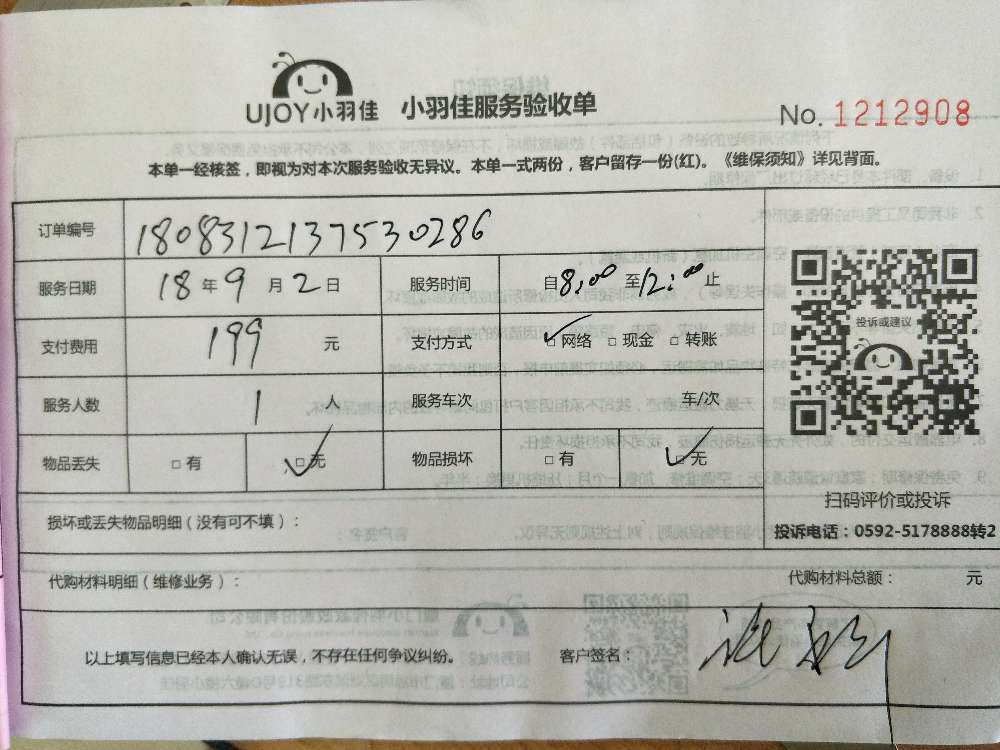 UJOY小羽佳 小羽佳服务验收单
No. 1212908
本单一经核签，即视为对本次服务验收无异议。本单一式两份，客户留存一份(红)。《维保须知》详见背面。
订单编号 1808312137530286
服务日期 18年9月2日 服务时间 自8:00至12:00止
支付费用 199元 支付方式 ☑网络 □现金 □转账
服务人数 1人 服务车次 车/次
物品丢失 □有 ☑无 物品损坏 □有 ☑无
投诉或建议
扫码评价或投诉
投诉电话：0592-5178888转2
损坏或丢失物品明细（没有可不填）：
代购材料明细（维修业务）： 代购材料总额： 元
以上填写信息已经本人确认无误，不存在任何争议纠纷。 客户签名：